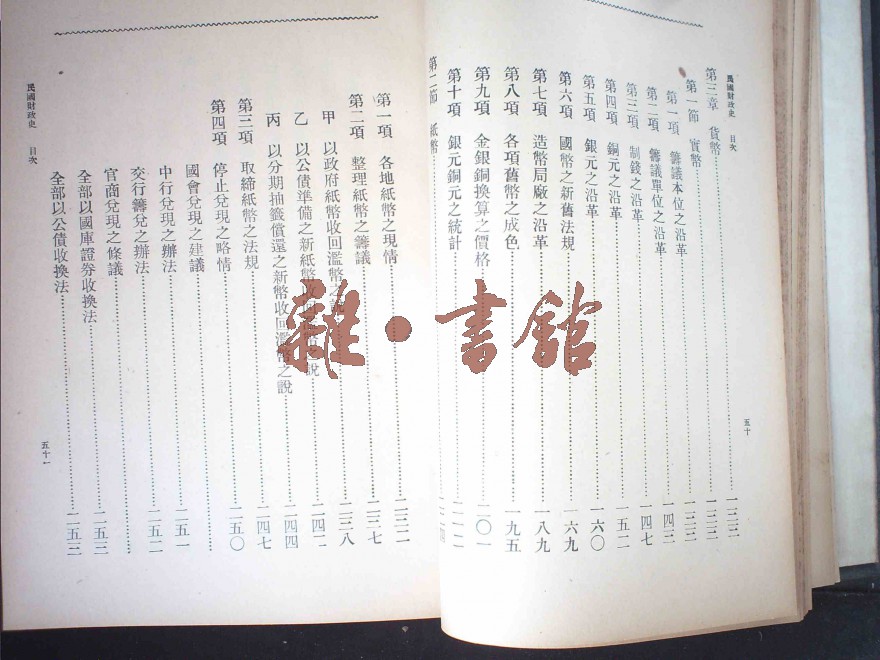 民國財政史 目次
第三章 貨幣……一三三
第一節 實幣……一三三
第一項 籌議本位之沿革……一三三
第二項 籌議單位之沿革……一四三
第三項 制錢之沿革……一四七
第四項 銅元之沿革……一五二
第五項 銀元之沿革……一六〇
第六項 國幣之新舊法規……一六九
第七項 造幣局廠之沿革……一八九
第八項 各項舊幣之成色……一九五
第九項 金銀銅換算之價格……二〇一
第十項 銀元銅元之統計……二一二
第二節 紙幣……
五十
第一項 各地紙幣之現情……
第二項 整理紙幣之籌議……二三七
甲 以政府紙幣收回濫幣之說……二三八
乙 以公債準備之新紙幣收回濫幣之說……二四二
丙 以分期抽籤償還之新幣收回濫幣之說……二四四
第三項 取締紙幣之法規……二四七
第四項 停止兌現之略情……二五〇
國會兌現之建議……
中行兌現之辦法……二五一
交行籌兌之辦法……二五二
官商兌現之條議……
全部以國庫證券收換法……二五三
全部以公債收換法……二五三
民國財政史 目次
五十一
雜·書館